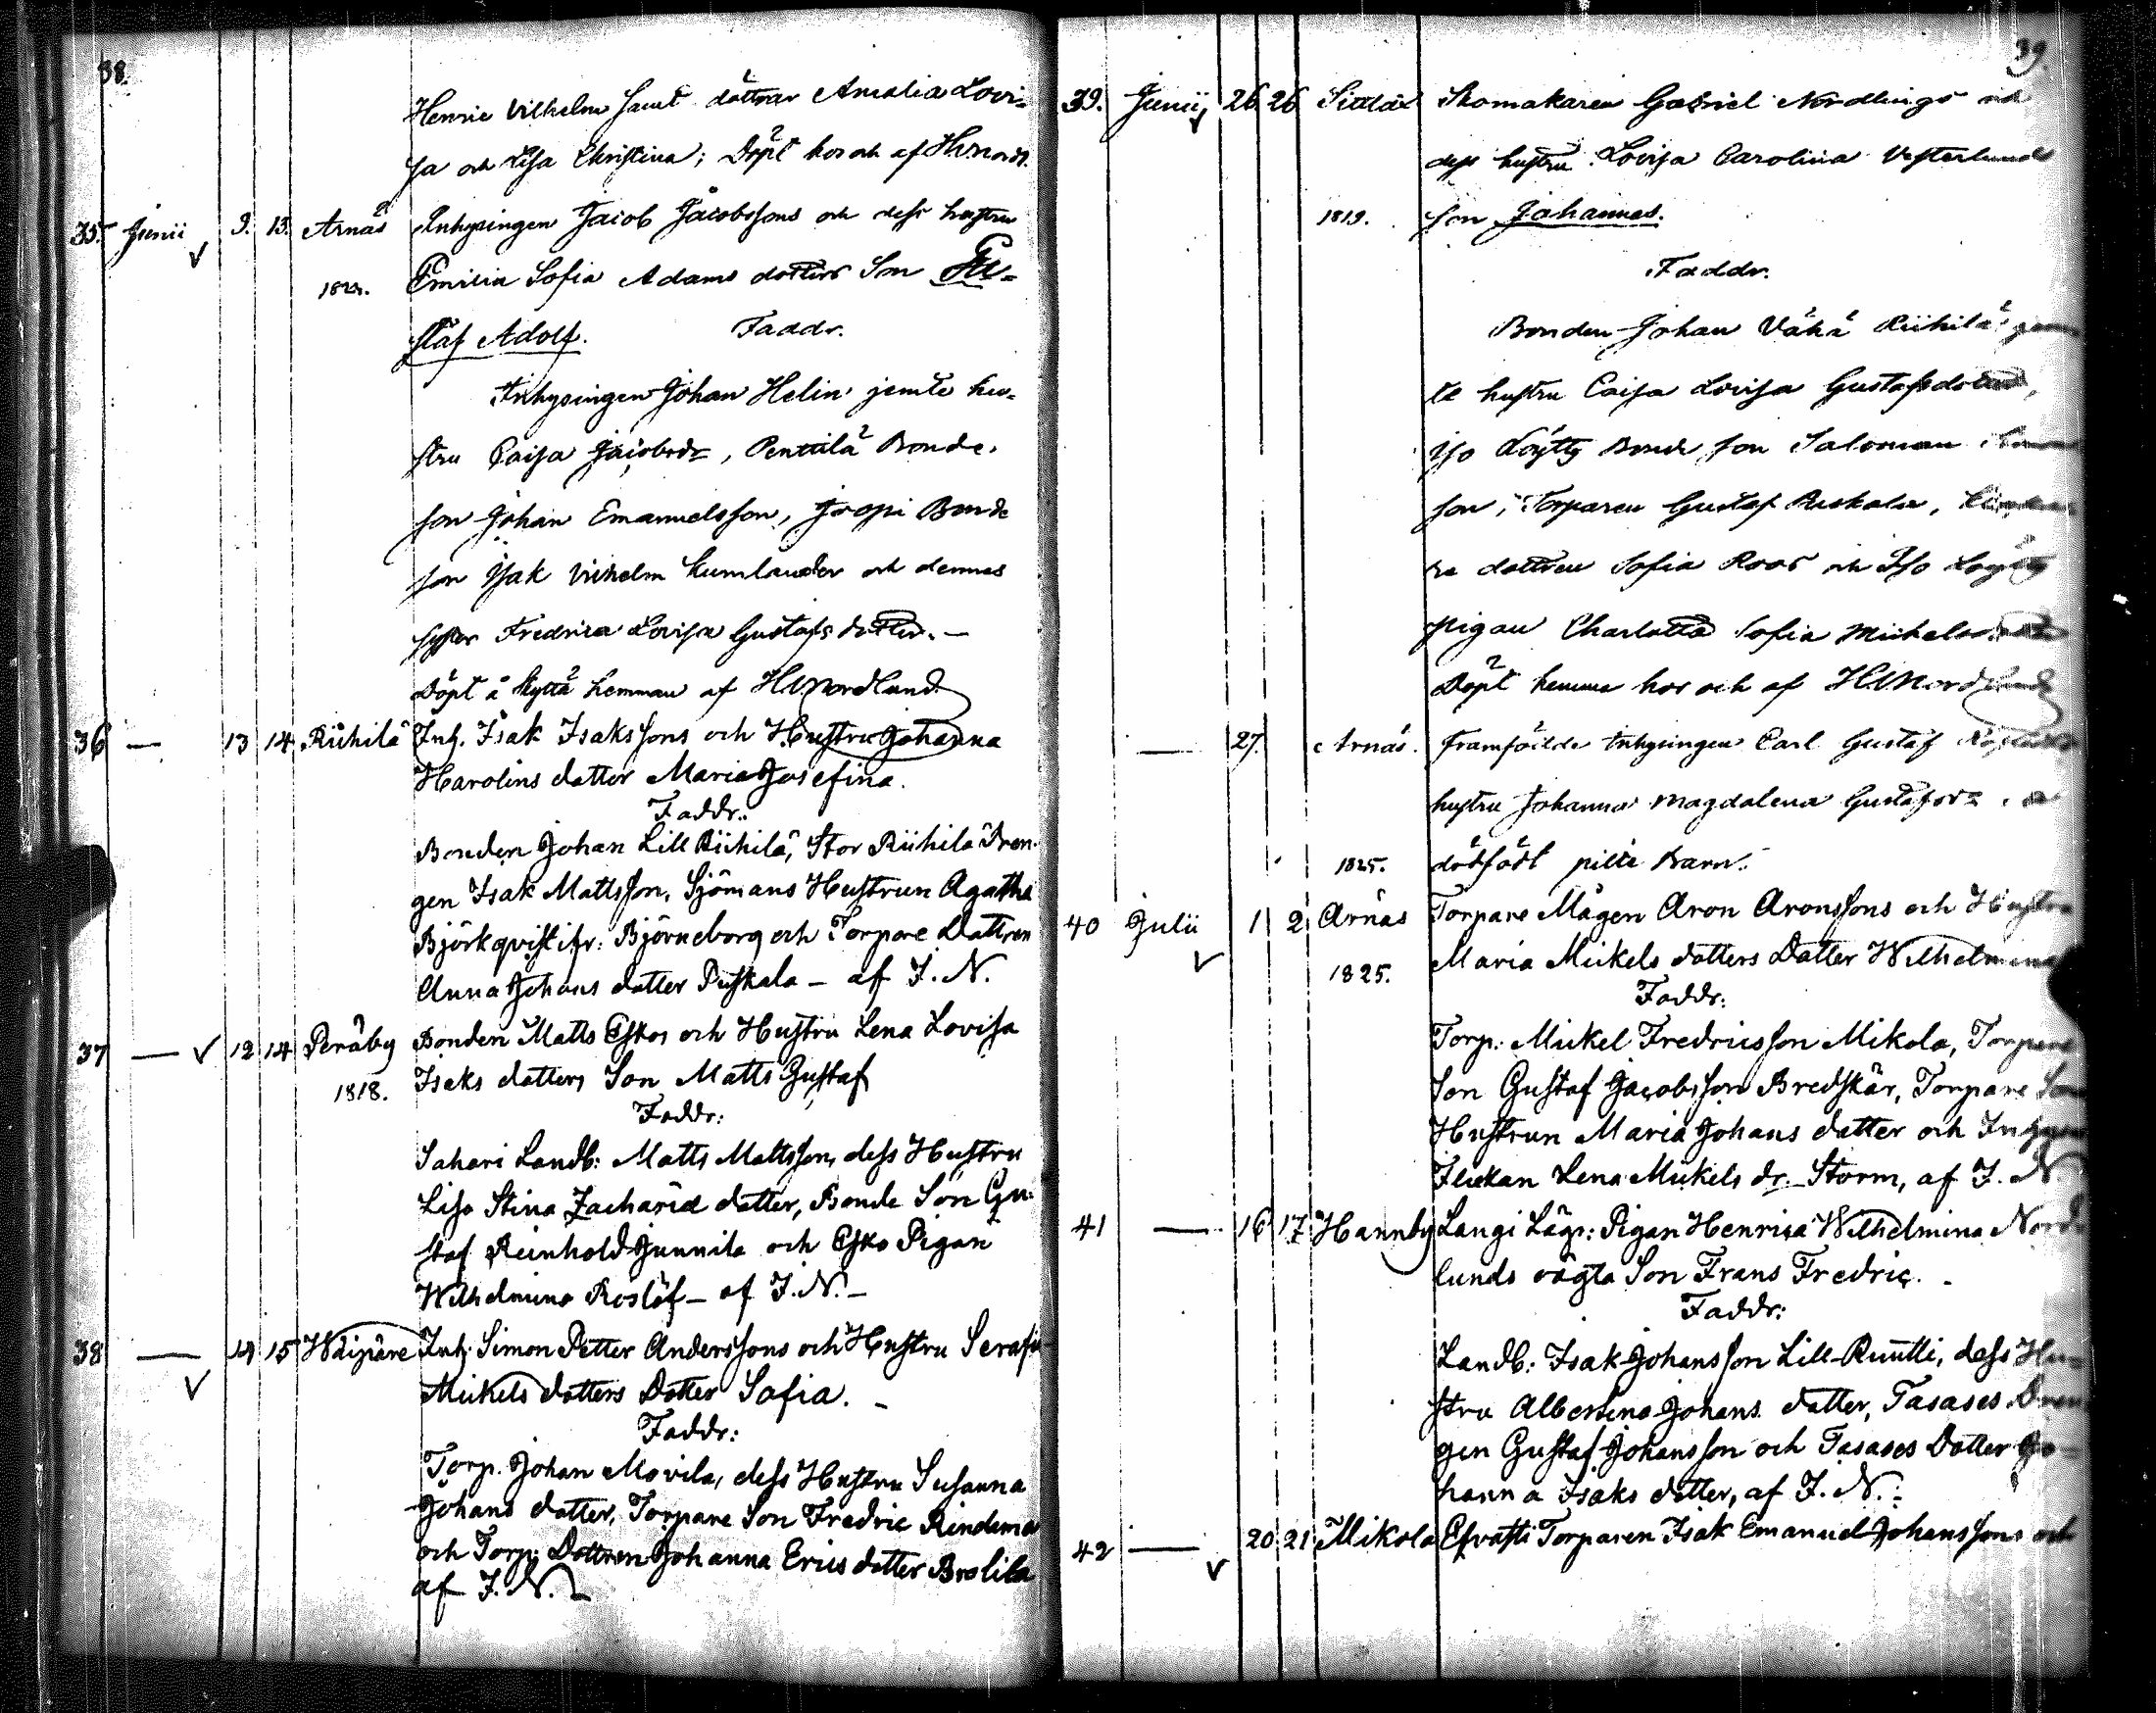 38.
Henric Vilhelm samt döttrar Amalia Lovi=
sa och Lisa Christina; Döpt hos och af
35. Junii 9. 13. Arnäs Inhysingen Jacob Jacobssons och dess hustru
1824. Emilia Sofia Adams dotters Son Gu=
staf Adolf. Faddr.
Inhysingen Johan Helin jemte hu=
stru Caisa Jacobsdr, Penttilä Bonde
son Johan Emanuelsson, Jooppi Bonde
son Isak Vilhelm Kumlander och dennes
syster Fredrica Lovisa Gustafs dotter. —
Döpt å Skyttä hemman af HNordlund
36 — 13 14 Riihilä Inh. Isak Isakssons och Hustru Johanna
Harolins datter Maria Josefina.
Faddr:
Bonden Johan Lill Riihilä, Stor Riihilä Dren-
gen Isak Mattsson, Sjömans Hustrun Agatha
Björkqvist ifr: Björneborg och Torpare Dattren
Anna Johans datter Puskala — af J. N.
37 — 12 14 Peräby Bonden Matts Eskos och Hustru Lena Lovisa
1818. Isaks datters Son Matts Gustaf
Faddr:
Sahari Landb: Matts Mattsson, dess Hustru
Lisa Stina Zachariæ datter, Bonde Son Gu=
staf Reinhold Junnila och Esko Pigan
Wilhelmina Roslöf — af J. N. —
38 — 14 15 Waipäre Inh. Simon Petter Anderssons och Hustru Serafia
Mickels datters Datter Sofia. —
Faddr:
Torp. Johan Movila, dess Hustru Susanna
Johans datter, Torpare Son Fredric Rindema
och Torp: Dottren Johanna Erics datter Brolila
af J. N. —
39.
39. Junii 26 26 Sittlax Skomakaren Gabriel Nordlings och
dess hustru Lovisa Carolina Vesterlunds
1819. son Johannes.
Faddr.
Bonden Johan Vähä Riihilä jem
te hustru Caisa Lovisa Gustafsdotter,
Iso Löytty Bonde son Saloman
son, Torparen Gustaf Puskala,
re dottren Sofia Roos och Iso Löytty
pigan Charlotta Sofia Mickelsdotter
Döpt hemma hos och af HNordlund
— 27. Arnäs. Framfödde Inhysingen Carl Gustaf
hustru Johanna Magdalena Gustafsdr
1825. dödfödt pilte Barn.
40 Julii 1 2 Arnäs Torpare Mågen Aron Aronssons och Hustru
1825. Maria Mickels dotters Datter Wilhelmina
Faddr:
Torp: Mickel Fredricsson Mikola, Torpare
Son Gustaf Jacobsson Bredskär, Torpare Son
Hustrun Maria Johans datter och Inhyses
Flickan Lena Mickels dr Storm, af J. N.
41 — 16 17 Hannby Langi Läg: Pigan Henrica Wilhelmina Nord
lunds oägta Son Frans Fredric. —
Faddr:
Landb: Isak Johansson Lill-Ruutti, dess Hu=
stru Albertina Johans datter, Tasases Dren
gen Gustaf Johansson och Tasases Datter Jo=
hanna Isaks datter, af J. N. —
42 — 20 21 Mikola Efrafti Torparen Isak Emanuel Johanssons och